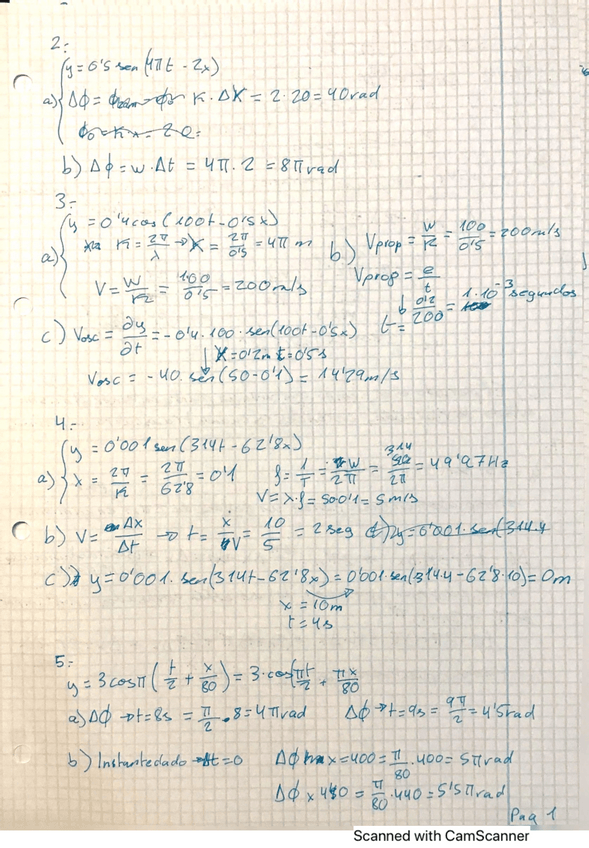 2:-
y = 0'5 sen (4πt - 2x)
a) Δϕ = K · ΔX = 2 · 20 = 40 rad
b) Δϕ = w · Δt = 4π · 2 = 8π rad
3:-
y = 0'4 cos (100t - 0'5x)
a) K = 2π/λ → λ = 2π/0'5 = 4π m
V = W/K = 100/0'5 = 200 m/s
b) Vprop = W/K = 100/0'5 = 200 m/s
Vprop = e/t
t = 0'2/200 = 1·10⁻³ segundos
c) Vosc = ∂y/∂t = -0'4 · 100 · sen(100t - 0'5x)
X = 0'2m t = 0'5s
Vosc = -40 · sen (50 - 0'1) = 14'29 m/s
4:-
y = 0'001 sen (314t - 62'8x)
a) λ = 2π/K = 2π/62'8 = 0'1 f = 1/T = W/2π = 314/2π = 49'97 Hz
V = λ·f = 50·0'1 = 5 m/s
b) V = Δx/Δt → t = x/V = 10/5 = 2 seg
c) y = 0'001 · sen(314t - 62'8x) = 0'001 · sen(314·4 - 62'8·10) = 0m
x = 10m
t = 4s
5:-
y = 3 cos π (t/2 + x/80) = 3 · cos(πt/2 + πx/80
a) Δϕ → t = 8s = π/2 · 8 = 4π rad Δϕ → t = 9s = 9π/2 = 4'5 rad
b) Instantedado Δt = 0 Δϕ x = 400 = π/80 · 400 = 5π rad
Δϕ x 440 = π/80 · 440 = 5'5π rad
Pag 1
Scanned with CamScanner